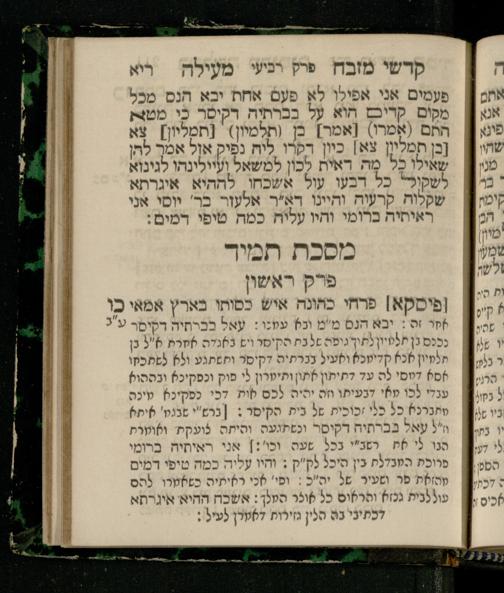 קדשי מזבח פרק רביעי מעילה ריא
פעמים אני אפילו לא פעם אחת יבא הנס מכל
מקום קדים הוא על בברתיה דקיסר כי מטא
התם (אמרו) [אמר] בן (תלמיון) [תמליון] צא
[בן תמליון צא] כיון דקרו ליה נפיק אזל אמר להן
שאילו כל מה דאית לכון למשאל ועיילינהו לגינזא
לשקול כל דבעו עול אשכחו לההיא איגרתא
שקלוה קרעוה] והיינו דא״ר אלעזר בר׳ יוסי אני
ראיתיה ברומי והיו עליה כמה טיפי דמים :
מסכת תמיד
פרק ראשון
[פיסקא] פרחי כהונה איש כסותו בארץ אמאי כו
אחר זה : יבא הנס מ״מ ובא עמנו : עאל בברתיה דקיסר ע״ב
נכנס בן תלמיון לתוך גופה של בת הקיסר ויש באגדה אחרת א״ל בן
תלמיון אנא קדימנא ואעיל בברתיה דקיסר ותשתגע ולא לשתכחו
אסא דמסי לה עד דתיתון אתון ותימרון לי פוק ונפקינא ובההוא
עבדי לכו מאי דבעיתו ומה יהיה לכם אות דכי נפקינא מינה
מתברנא כל כלי זכוכית של בית הקיסר : [ברש״י שבגמ׳ איתא
וז״ל עאל בברתיה דקיסר ונשתגעה והיתה צועקת ואומרת
הבו לי את רשב״י בכל שעה וכו׳:] אני ראיתיה ברומי
פרוכת המבדלת בין היכל לק״ק : והיו עליה כמה טיפי דמים
מהזאת פר ושעיר של יה״כ : ופי׳ אני ראיתיה כשאמרו להם
עול לבית גנזא והראום כל אוצר המלך : אשכח ההיא איגרתא
דכתיבי בה הלין גזירות דאמרן לעיל :